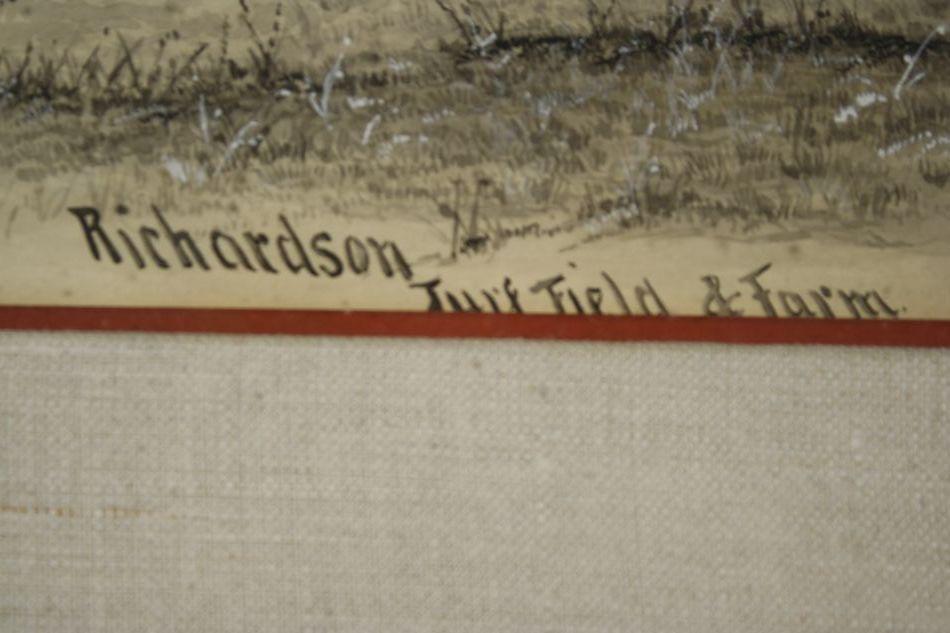 Richardson
Turf Field & Farm.